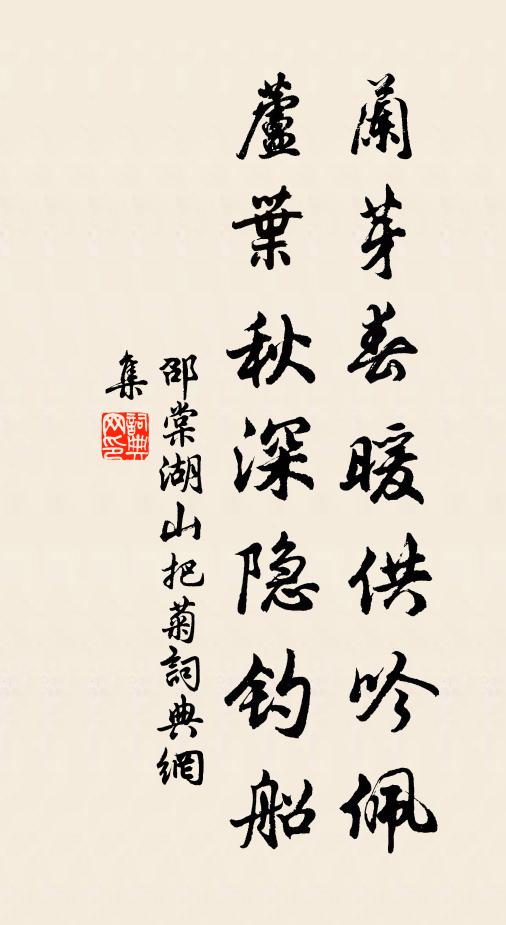 蘭芽春暖供吟佩
蘆葉秋深隐钓船
邵棠湖山把菊詞典網
集
詞典网印